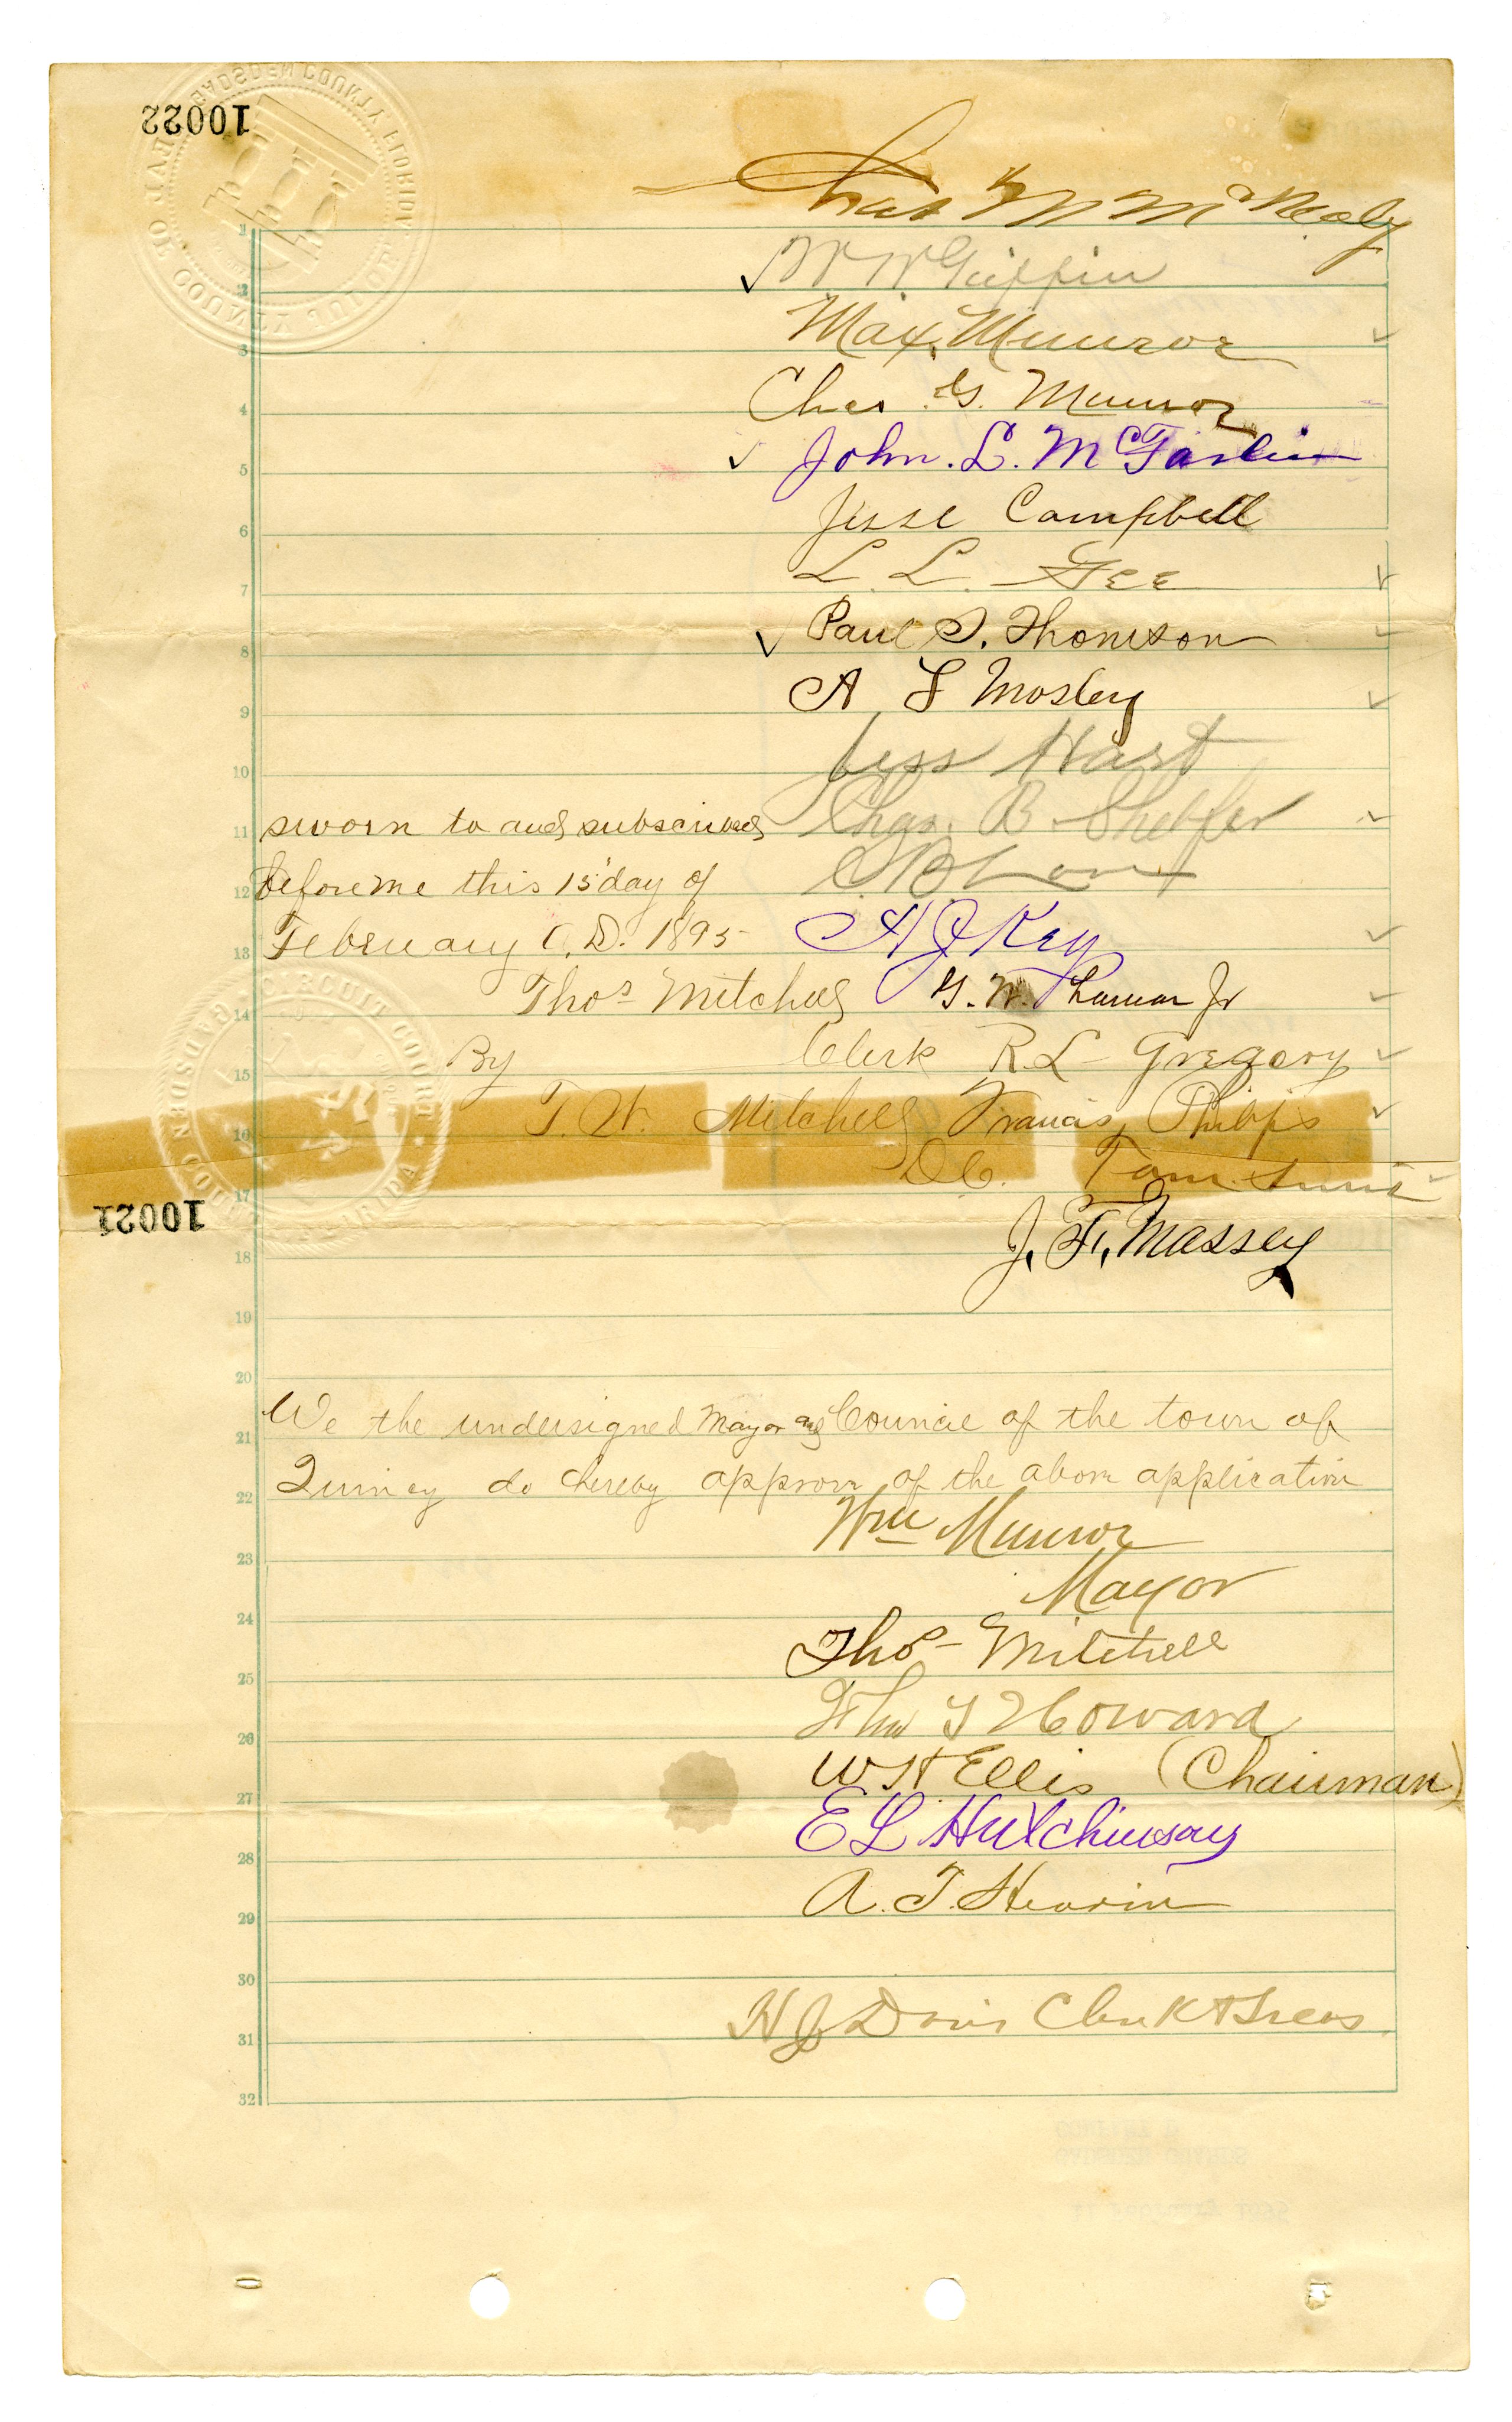 10022
W W Griffin
Max. Munroe
Chas G. Munroe
John. L. McFarlin
Jesse Campbell
L. L. Gee
Paul S. Thomson
A L Mosley
Jess Hart
sworn to and subscribed Chas. B. Shelfer
before me this 15 day of
February A.D. 1895 A J Key
Thos Mitchell G. W. Jr
By Clerk R. L. Gregory
T. W. Mitchell Francis Philips
D C. Tom
J. F. Massey
10021
We the undersigned Mayor and Council of the town of
Quincy do hereby approve of the above application
Wm Munroe
Mayor
Thos Mitchell
Howard
W H Ellis (Chairman)
E L Hutchinson
A. T. Hearin
H J Davis Clerk & Treas
1
2
3
4
5
6
7
8
9
10
11
12
13
14
15
16
17
18
19
20
21
22
23
24
25
26
27
28
29
30
31
32